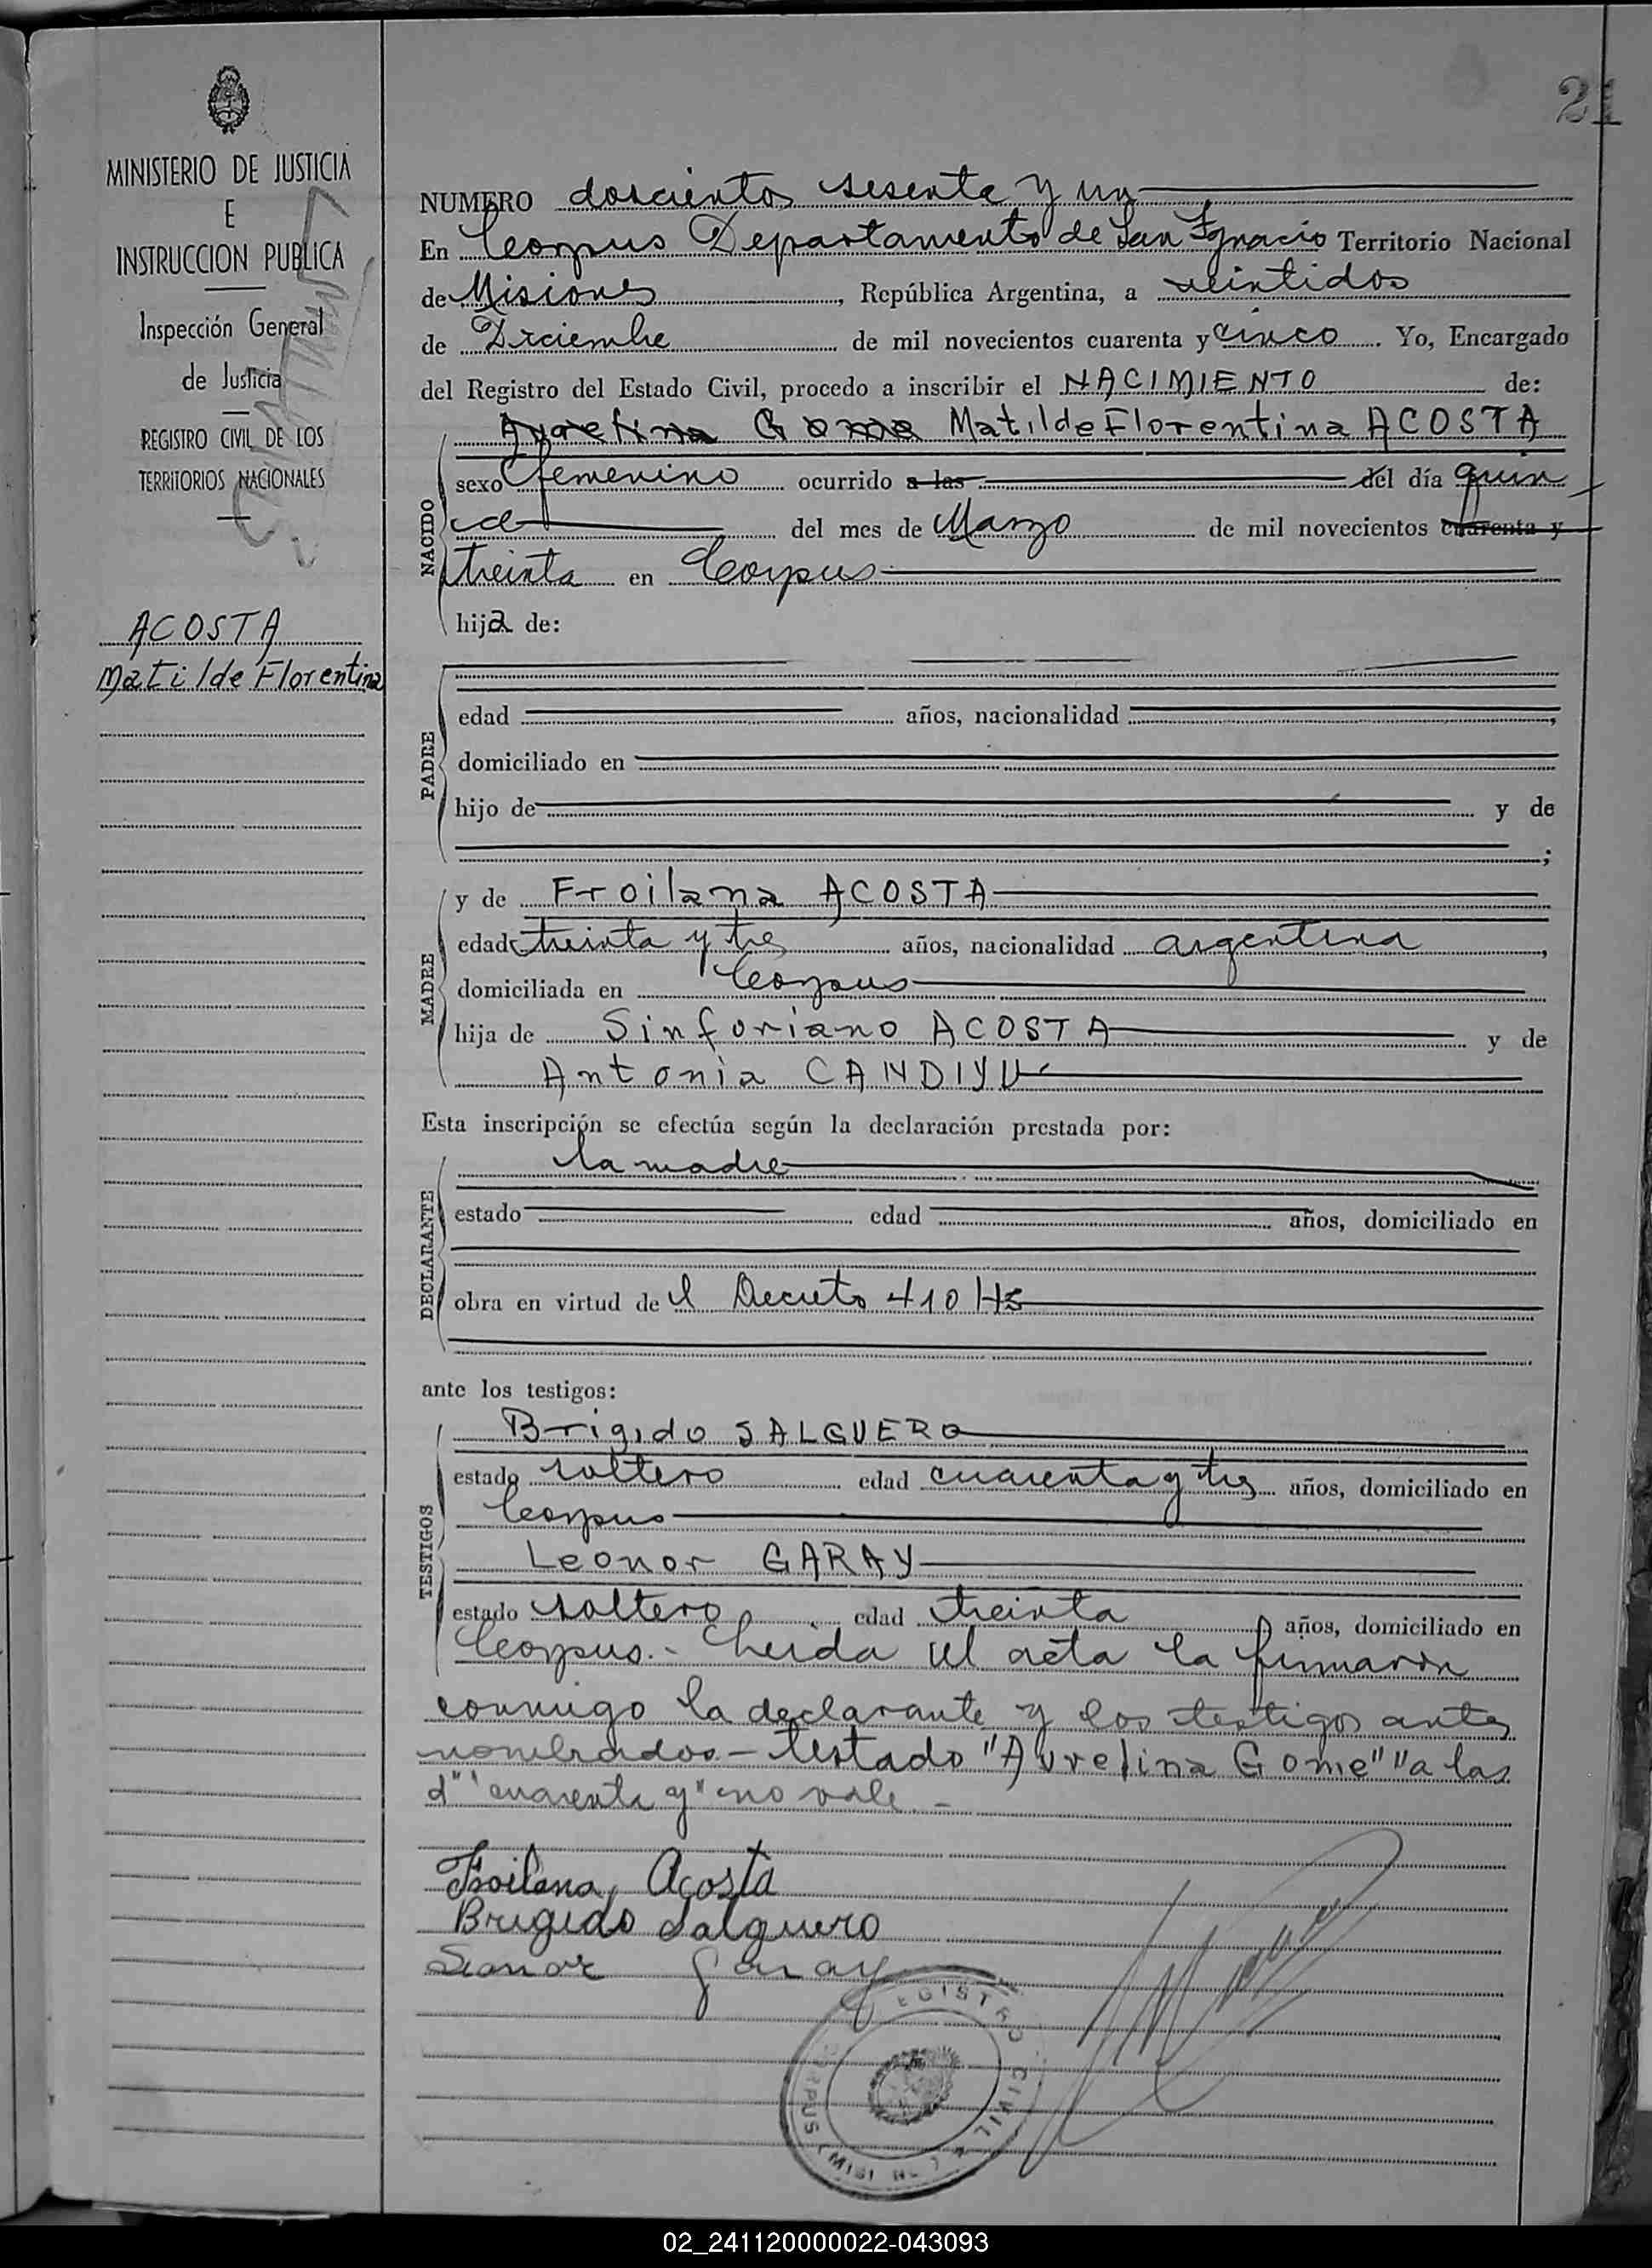 21
MINISTERIO DE JUSTICIA
E
INSTRUCCION PUBLICA
Inspección General
de Justicia
REGISTRO CIVIL DE LOS
TERRITORIOS NACIONALES
ACOSTA
Matilde Florentina
NUMERO doscientos sesenta y un
En Corpus Departamento de San Ignacio Territorio Nacional
de Misiones, República Argentina, a veintidos
de Diciembre de mil novecientos cuarenta y cinco. Yo, Encargado
del Registro del Estado Civil, procedo a inscribir el NACIMIENTO de:
Aurelina Gome Matilde Florentina ACOSTA
NACIDO
sexo femenino ocurrido a las del día quin
ce del mes de Marzo de mil novecientos cuarenta y
treinta en Corpus
hija de:
PADRE
edad años, nacionalidad ,
domiciliado en
hijo de y de
;
MADRE
y de Froilana ACOSTA
edad treinta y tres años, nacionalidad argentina,
domiciliada en Corpus
hija de Sinforiano ACOSTA y de
Antonia CANDIYU
Esta inscripción se efectúa según la declaración prestada por:
DECLARANTE
la madre
estado edad años, domiciliado en
obra en virtud de l Decreto 410
ante los testigos:
TESTIGOS
Brigido SALGUERO
estado soltero edad cuarenta y tres años, domiciliado en
Corpus
Leonor GARAY
estado soltero edad treinta años, domiciliado en
Corpus.- Leida el acta la firmaron
conmigo la declarante y los testigos antes
nombrados.- testado "Aurelina Gome" "a las
d" "cuarenta y" no vale.-
Froilana Acosta
Brigido Salguero
Leonor Garay
REGISTRO CIVIL
CORPUS (MISIONES)
02_241120000022-043093